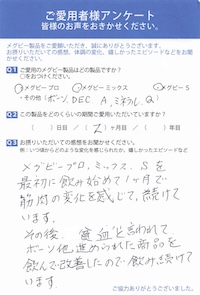 ご愛用者様アンケート
皆様のお声をおきかせください。
メグビー製品をご愛顧いただき、誠にありがとうございます。
お摂りいただいての感想、体調の変化、嬉しかったエピソードなどをお聞かせください。
Q1 ご愛用のメグビー製品はどの製品ですか?
○をおつけください。
・メグビープロ ・メグビーミックス ・メグビーS
・その他(ボーン、DEC、A、ミネラル、Q)
Q2 この製品をどのくらいの期間ご愛用いただいていますか?
( )日目 / ( 2 )ヶ月目 / ( )年目
Q3 お摂りいただいての感想をおきかせください。
メグビープロ、ミックス、Sを
最初に飲み始めて1ヶ月で
筋肉の変化を感じて、続けて
います。
その後、貧血と言われて
ボーン他進められた商品を
飲んで改善したので飲み続けて
います。
ご協力ありがとうございました。